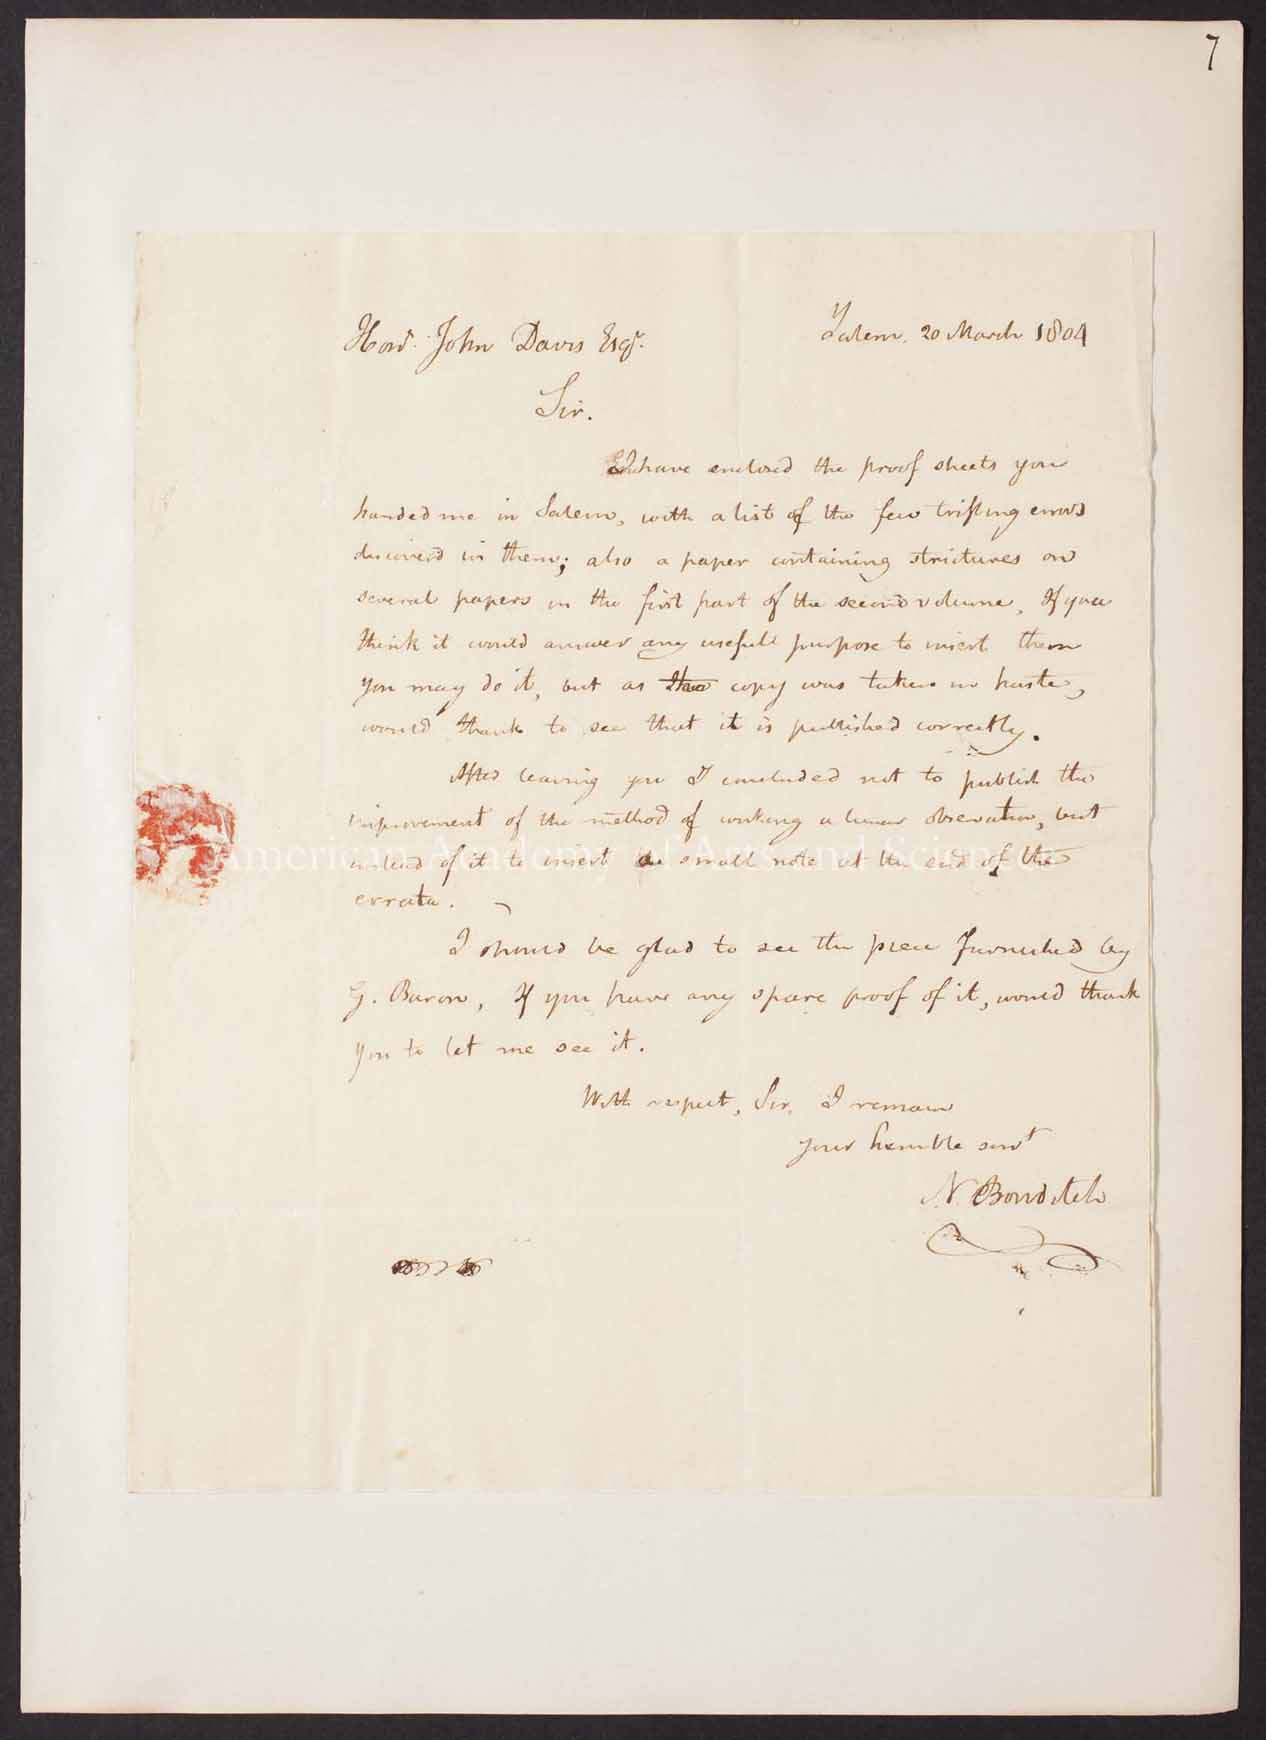 7
Salem, 20 March 1804
Hon^d. John Davis Esq^r.
Sir.
I have enclosed the proof sheets you
handed me in Salem, with a list of the few trifling errors
discover'd in them; also a paper containing strictures on
several papers in the first part of the second volume, If you
think it would answer any usefull purpose to insert them
you may do it, but as the copy was taken in haste,
would thank to see that it is published correctly.
After leaving you I concluded not to publish the
improvement of the method of working a lunar observation, but
instead of it to insert a small note at the end of the
errata.
I should be glad to see the piece furnished by
G. Baron, If you have any spare proof of it, would thank
you to let me see it.
With respect, Sir, I remain
your humble serv^t
N. Bowditch
American Academy of Arts and Sciences